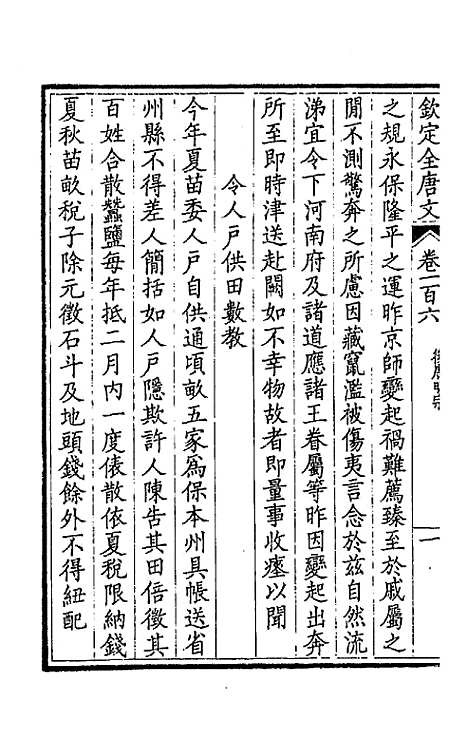 欽定全唐文 卷一百六 後唐明宗 一
之規永保隆平之運昨京師變起禍難薦臻至於戚屬之
閒不測驚奔之所慮因藏竄濫被傷夷言念於兹自然流
涕宜令下河南府及諸道應諸王眷屬等昨因變起出奔
所至即時津送赴闕如不幸物故者即量事收瘞以聞
令人戶供田數教
今年夏苗委人戶自供通頃畝五家爲保本州具帳送省
州縣不得差人簡括如人戶隱欺許人陳告其田倍徵其
百姓合散蠶鹽每年抵二月內一度俵散依夏稅限納錢
夏秋苗畝稅子除元徵石斗及地頭錢餘外不得紐配